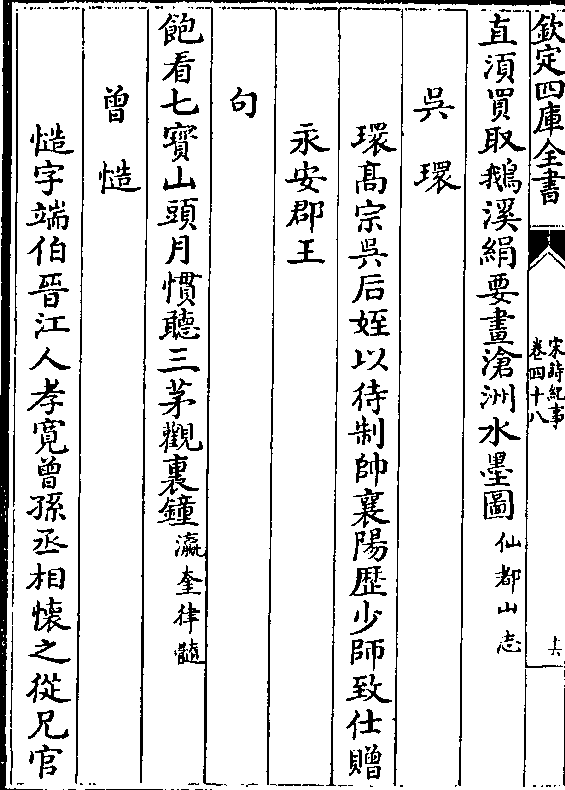 欽定四庫全書
宋詩紀事
卷四十八
直須買取鵝溪絹要畫滄洲水墨圖仙都山志
吳環
環髙宗吳后姪以待制帥襄陽歴少師致仕贈
永安郡王
句
飽看七寳山頭月慣聽三茅觀裏鐘瀛奎律髓
曾慥
慥字端伯晉江人孝寛曾孫丞相懐之從兄官